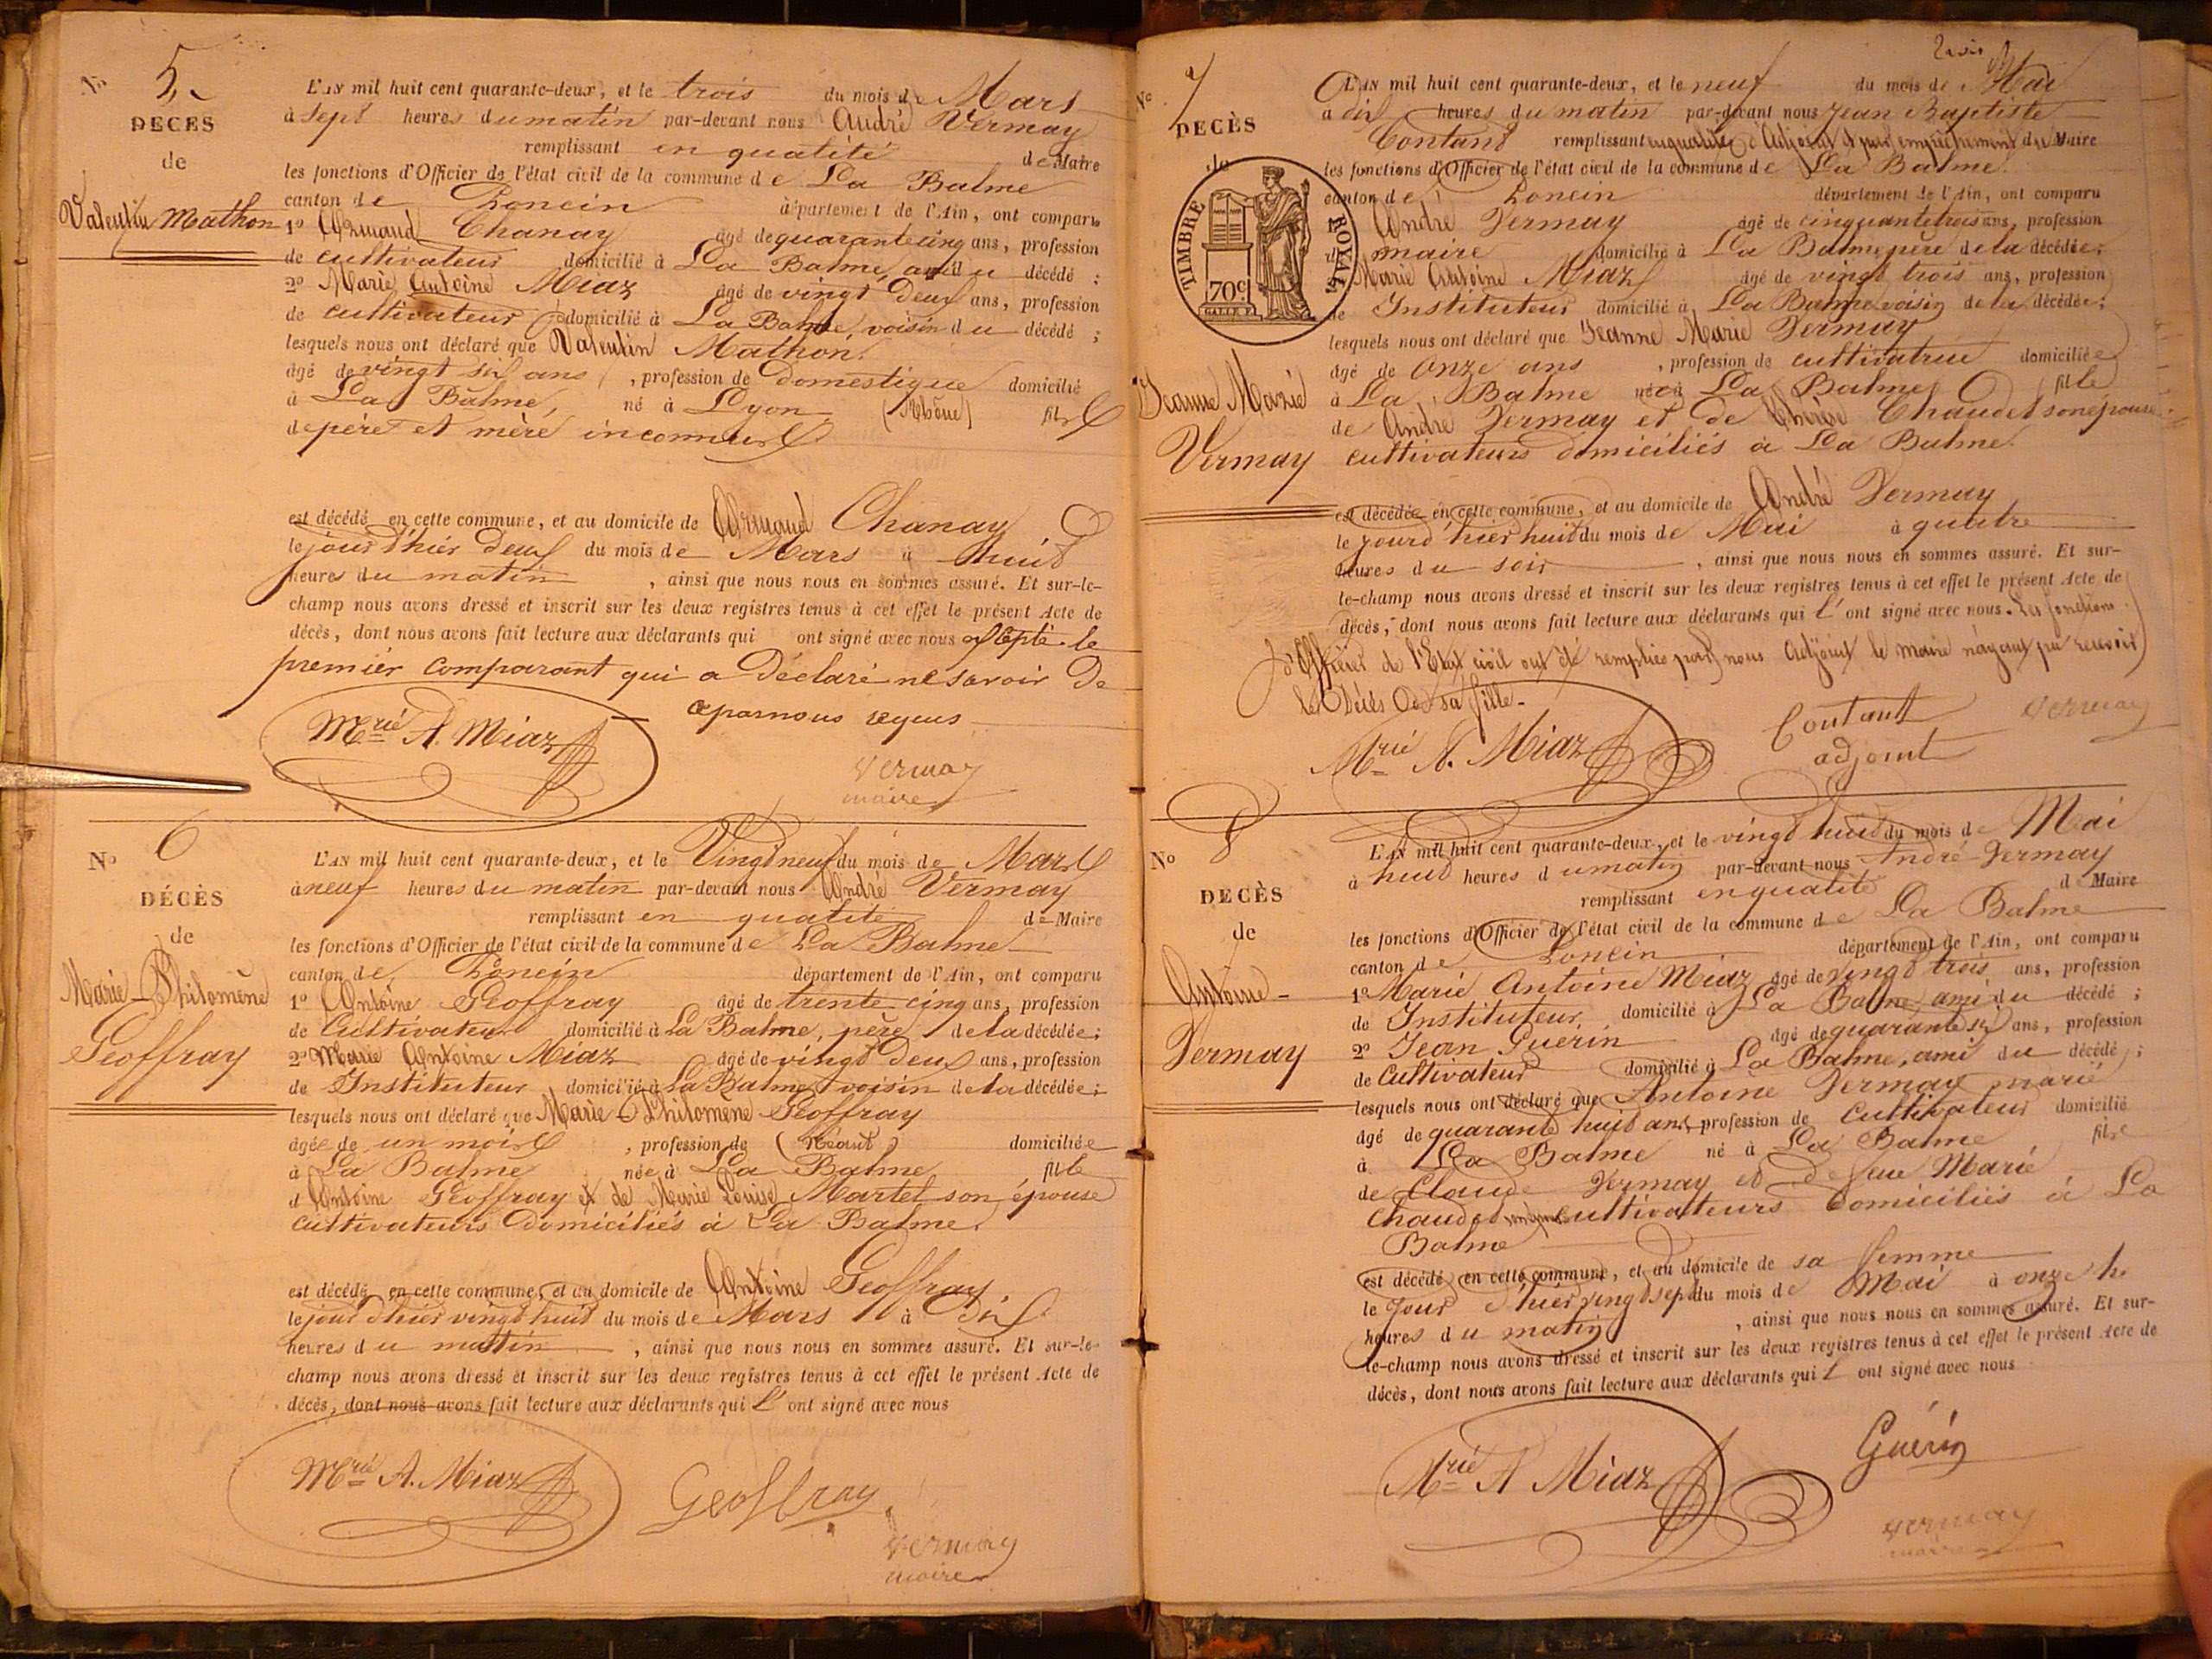 No 5.
DÉCÈS
de
Valentin Mathon
L'AN mil huit cent quarante-deux, et le trois du mois de Mars
à sept heures du matin par-devant nous André Vermay
remplissant en qualité de Maire
les fonctions d'Officier de l'état civil de la commune de La Balme
canton de Poncin département de l'Ain, ont comparu
1º Armand Chanay âgé de quarante cinq ans, profession
de cultivateur domicilié à La Balme, ami du décédé ;
2º Marie Antoine Miaz âgé de vingt deux ans, profession
de cultivateur domicilié à La Balme, voisin du décédé ;
lesquels nous ont déclaré que Valentin Mathon
âgé de vingt six ans, profession de domestique domicilié
à La Balme, né à Lyon (Rhône) fils
de père et mère inconnus
est décédé en cette commune, et au domicile de Armand Chanay
le jour d'hier deux du mois de Mars à huit
heures du matin, ainsi que nous nous en sommes assuré. Et sur-le-
champ nous avons dressé et inscrit sur les deux registres tenus à cet effet le présent Acte de
décès, dont nous avons fait lecture aux déclarants qui ont signé avec nous excepté le
premier comparant qui a déclaré ne savoir de
ce par nous requis
Mrie A. Miaz
Vermay
maire
No 6
DÉCÈS
de
Marie-Philomène
Geoffray
L'AN mil huit cent quarante-deux, et le Vingt neuf du mois de Mars
à neuf heures du matin par-devant nous André Vermay
remplissant en qualité de Maire
les fonctions d'Officier de l'état civil de la commune de La Balme
canton de Poncin département de l'Ain, ont comparu
1º Antoine Geoffray âgé de trente-cinq ans, profession
de Cultivateur domicilié à La Balme, père de la décédée ;
2º Marie Antoine Miaz âgé de vingt deux ans, profession
de Instituteur domicilié à La Balme, voisin de la décédée ;
lesquels nous ont déclaré que Marie-Philomène Geoffray
âgée de un mois, profession de (Néant) domiciliée
à La Balme née à La Balme fille
d'Antoine Geoffray et de Marie Louise Martel son épouse
cultivateurs domiciliés à La Balme
est décédé en cette commune, et au domicile de Antoine Geoffray
le jour d'hier vingt huit du mois de Mars à Dix
heures du matin, ainsi que nous nous en sommes assuré. Et sur-le-
champ nous avons dressé et inscrit sur les deux registres tenus à cet effet le présent Acte de
décès, dont nous avons fait lecture aux déclarants qui l' ont signé avec nous
Mrie A. Miaz
Geoffray
Vermay
maire
trois
No 7
DÉCÈS
de
TIMBRE ROYAL
70c
Jeanne Marie
Vermay
L'AN mil huit cent quarante-deux, et le neuf du mois de Mai
à dix heures du matin par-devant nous Jean Baptiste
Contant remplissant en qualité d'Adjoint et par empêchement du Maire
les fonctions d'Officier de l'état civil de la commune de La Balme
canton de Poncin département de l'Ain, ont comparu
André Vermay âgé de cinquante trois ans, profession
maire domicilié à La Balme, père de la décédée ;
Marie Antoine Miaz âgé de vingt trois ans, profession
de Instituteur domicilié à La Balme voisin de la décédée ;
lesquels nous ont déclaré que Jeanne Marie Vermay
âgé de onze ans, profession de cultivatrice domiciliée
à La Balme née à La Balme fille
de André Vermay et de Thérèse Chaudet son épouse
cultivateurs domiciliés à La Balme
est décédée en cette commune, et au domicile de André Vermay
le jourd'hier huit du mois de Mai à quatre
heures du soir, ainsi que nous nous en sommes assuré. Et sur-
le-champ nous avons dressé et inscrit sur les deux registres tenus à cet effet le présent Acte de
décès, dont nous avons fait lecture aux déclarants qui l' ont signé avec nous. Les fonctions
d'Officier de l'Etat civil ont été remplies par nous Adjoint le maire n'ayant pu recevoir
le Décès de sa fille.
Mrie A. Miaz
Contant
adjoint
Vermay
No 8
DÉCÈS
de
Antoine
Vermay
L'AN mil huit cent quarante-deux, et le vingt huit du mois de Mai
à huit heures du matin par-devant nous André Vermay
remplissant en qualité de Maire
les fonctions d'Officier de l'état civil de la commune de La Balme
canton de Poncin département de l'Ain, ont comparu
1º Marie Antoine Miaz âgé de vingt trois ans, profession
de Instituteur domicilié à La Balme, ami du décédé ;
2º Jean Guérin âgé de quarante six ans, profession
de Cultivateur domicilié à La Balme, ami du décédé ;
lesquels nous ont déclaré que Antoine Vermay marié
âgé de quarante huit ans, profession de Cultivateur domicilié
à La Balme né à La Balme fils
de Claude Vermay et de feue Marie
Chaudet cultivateurs domiciliés à La
Balme
est décédé en cette commune, et au domicile de sa femme
le jour d'hier vingt sept du mois de Mai à onze h.
heures du matin, ainsi que nous nous en sommes assuré. Et sur-
le-champ nous avons dressé et inscrit sur les deux registres tenus à cet effet le présent Acte de
décès, dont nous avons fait lecture aux déclarants qui l' ont signé avec nous
Mrie A Miaz
Guérin
Vermay
maire